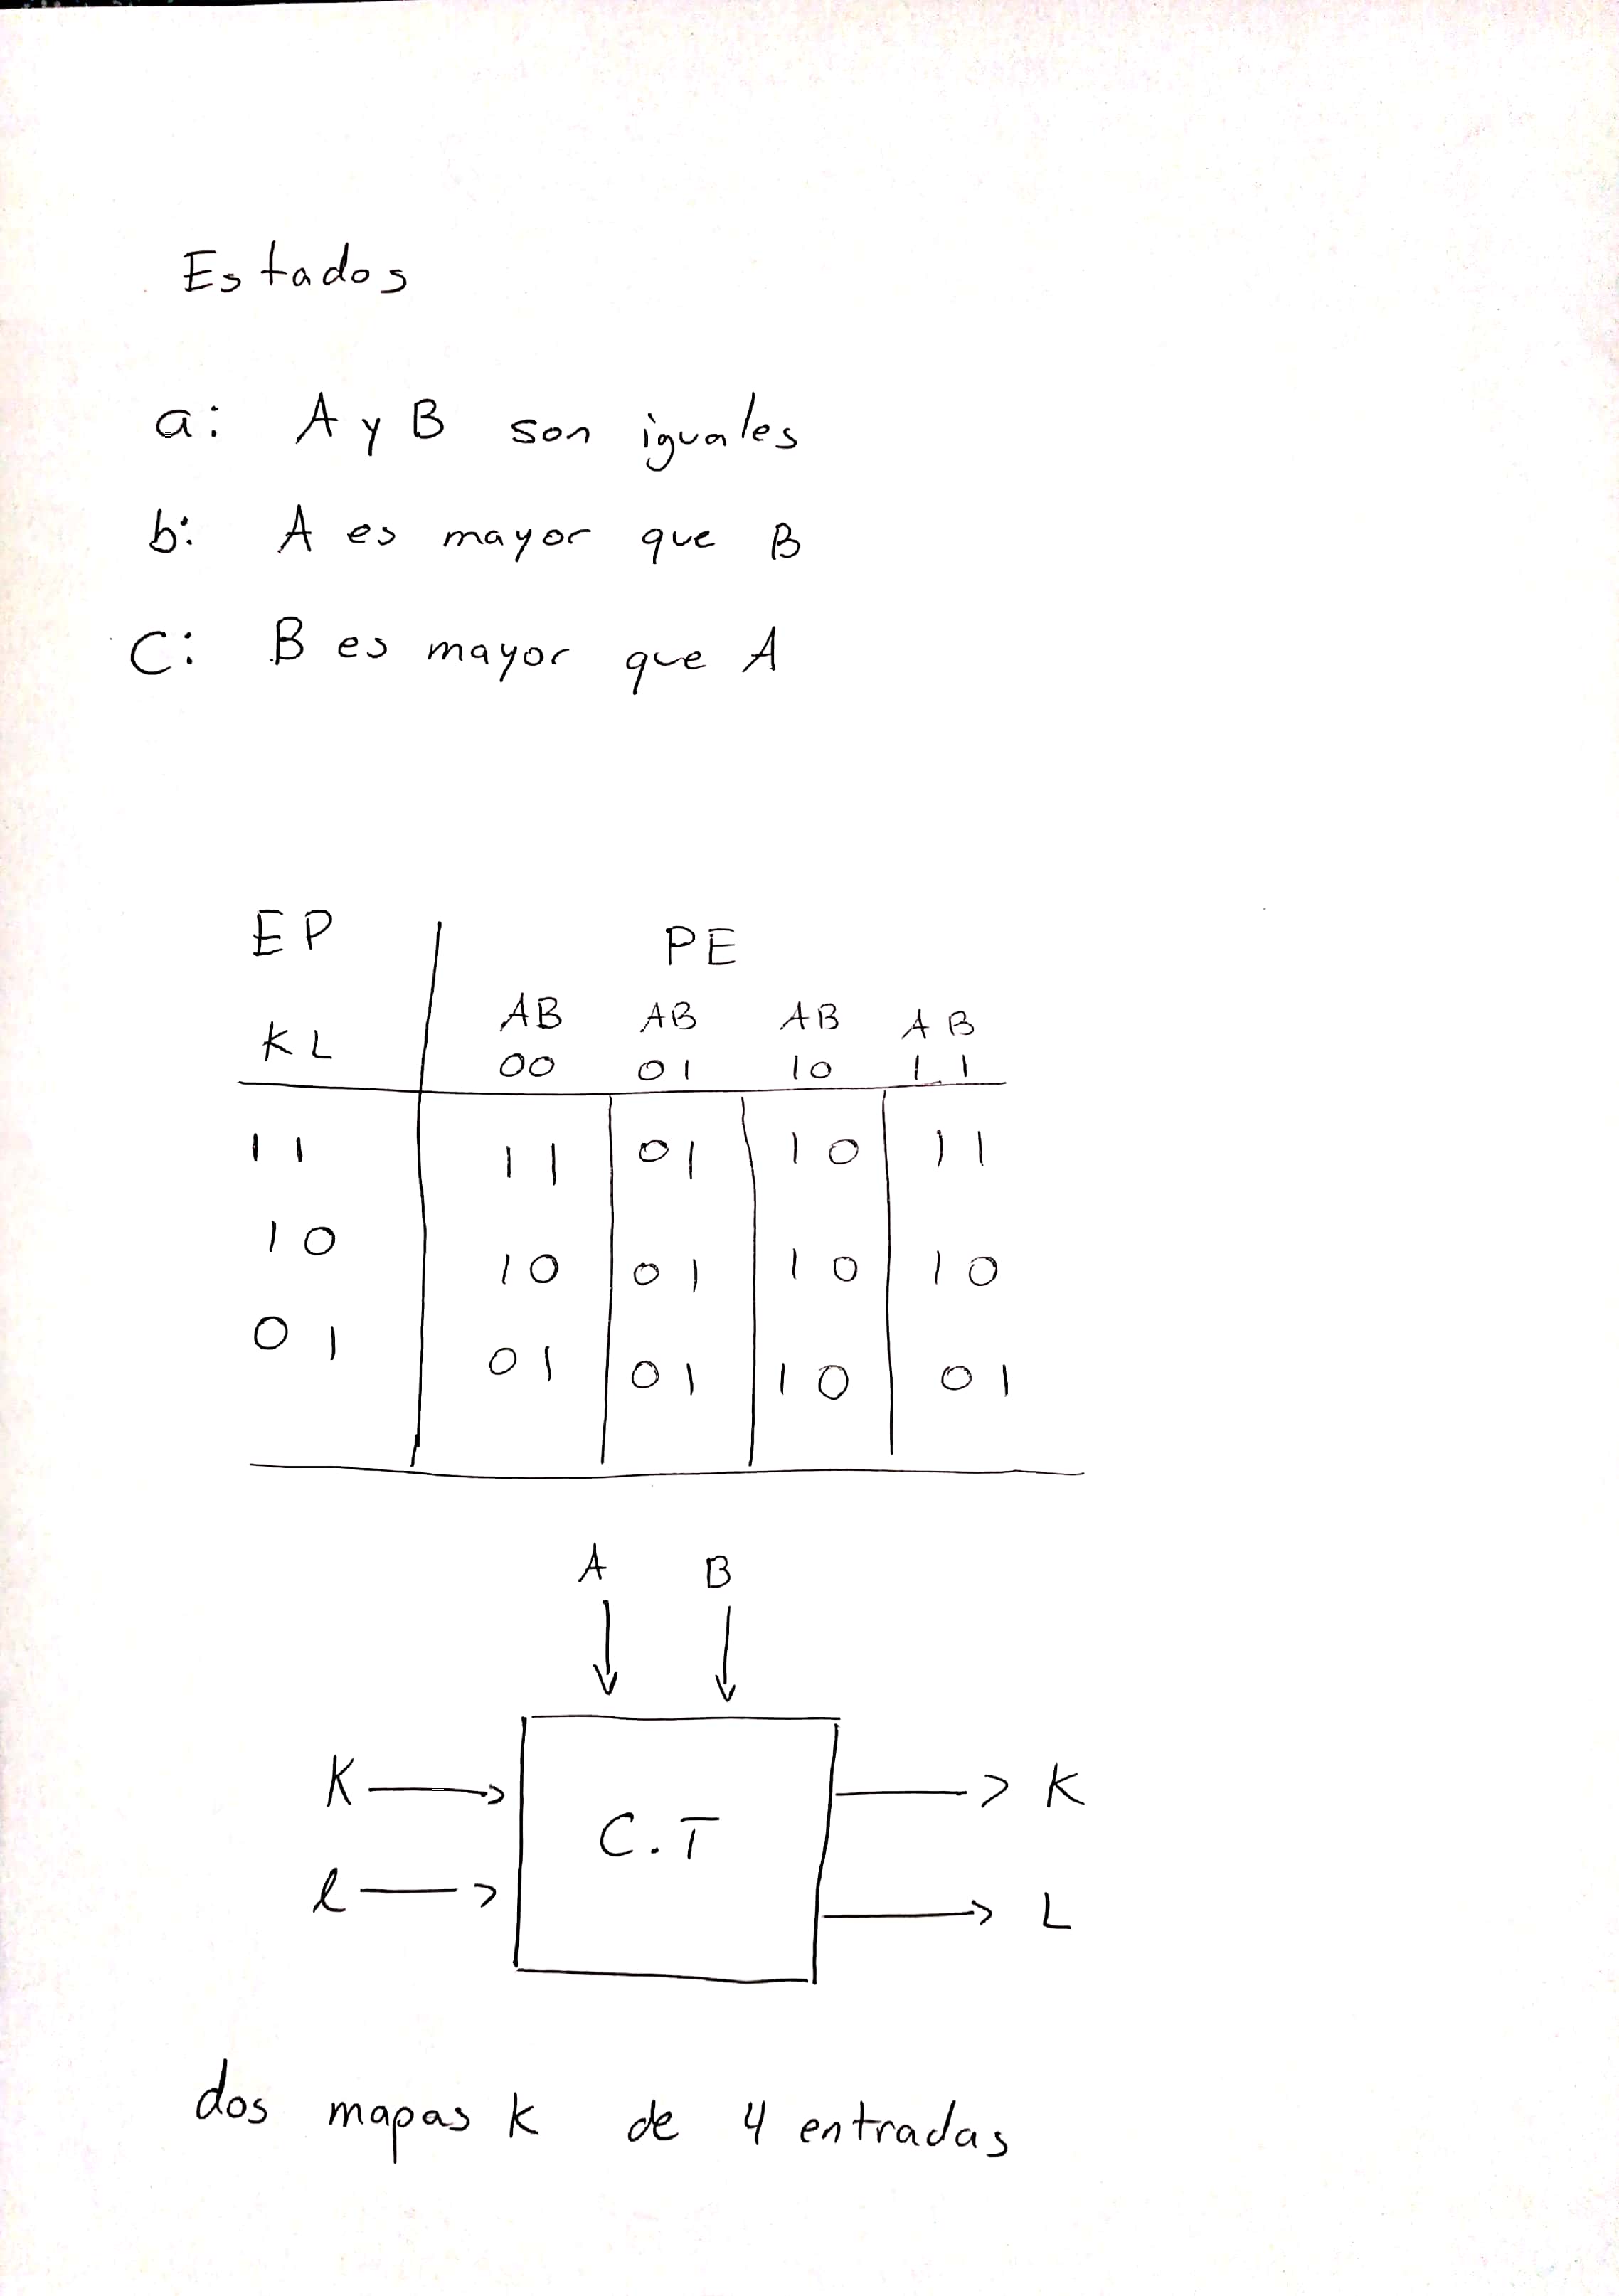 Estados
a: A y B son iguales
b: A es mayor que B
C: B es mayor que A
EP PE
KL AB AB AB AB
00 01 10 11
11 11 01 10 11
10 10 01 10 10
01 01 01 10 01
A B
K C.T K
l L
dos mapas k de 4 entradas